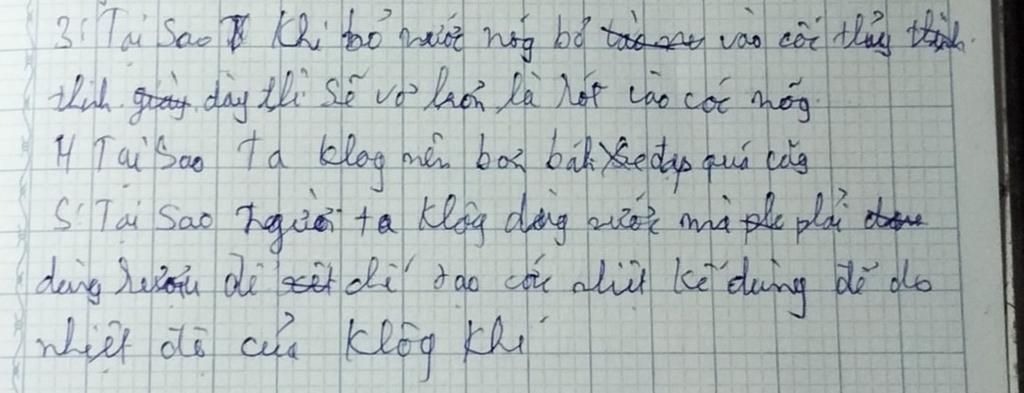 3: Tại Sao Khi bỏ nước nóg bỏ vào cốc thủy
tinh dày thì Sẽ vỡ hơn là rót vào cốc mỏg
4 Tại Sao Ta klog nên bơm bánh xe đạp quá căg
5: Tại Sao người ta Klôg dùng nước mà phải
dùng rượu để để tạo các nhiệt kế dùng để đo
nhiệt độ của Klôg Khí